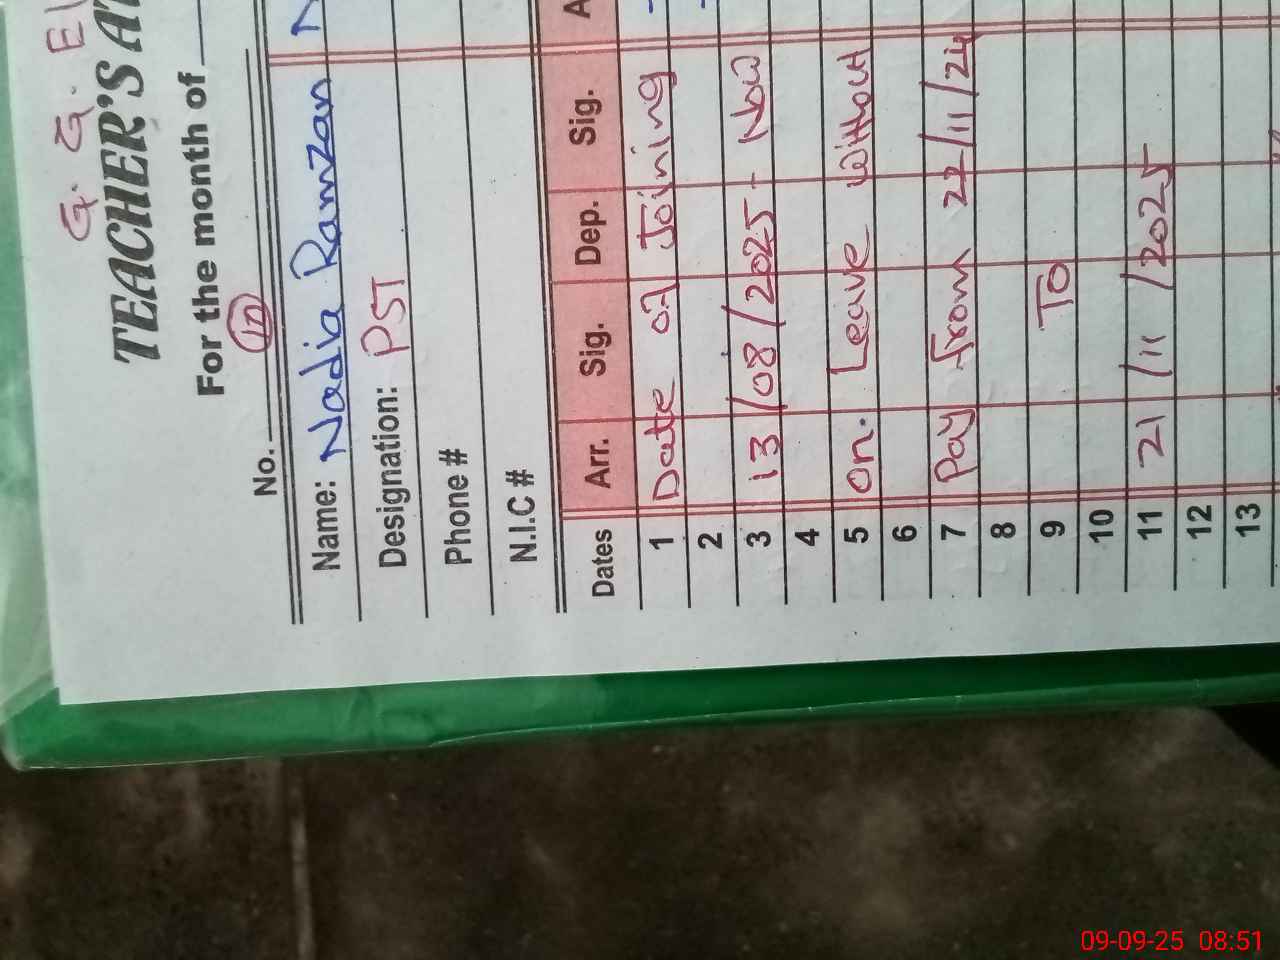 G. G. E
TEACHER'S AT
For the month of
No. 10
Name: Nadia Ramzan
Designation: PST
Phone #
N.I.C #
Dates Arr. Sig. Dep. Sig. A
1 Date of Joining
2
3 13/08/2025- Now
4
5 on. Leave without
6
7 Pay from 22/11/24
8
9 To
10
11 21/11/2025
12
13
09-09-25 08:51